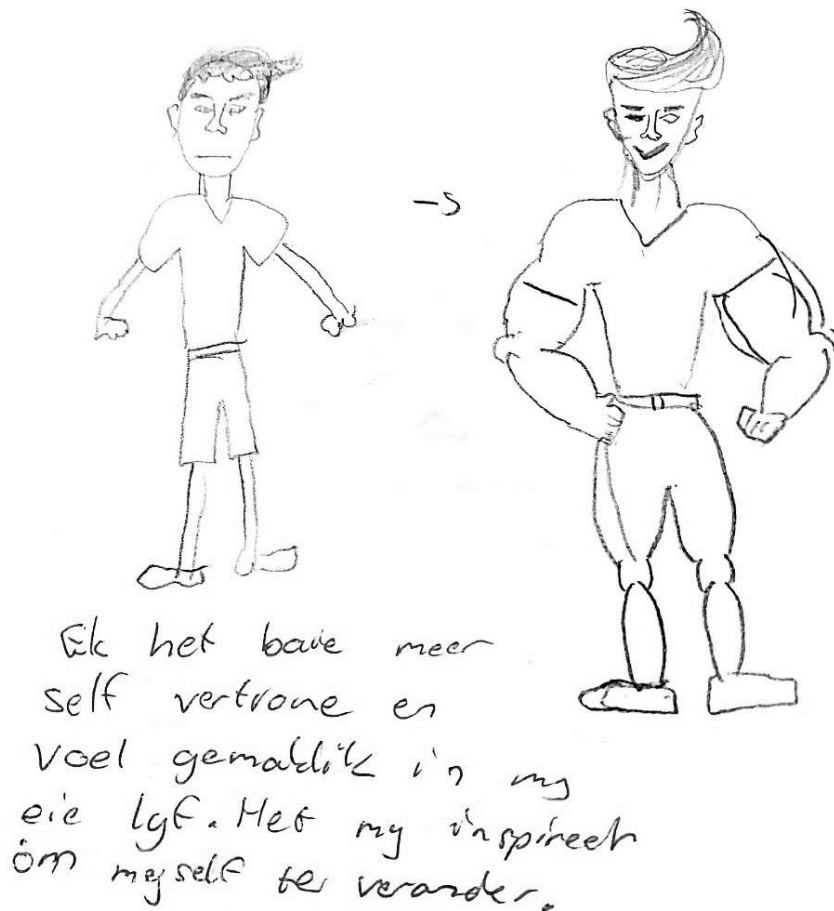 Ek het baie meer
self vertroue en
voel gemaklik in my
eie lyf. Het my inspireer
om myself te verander.